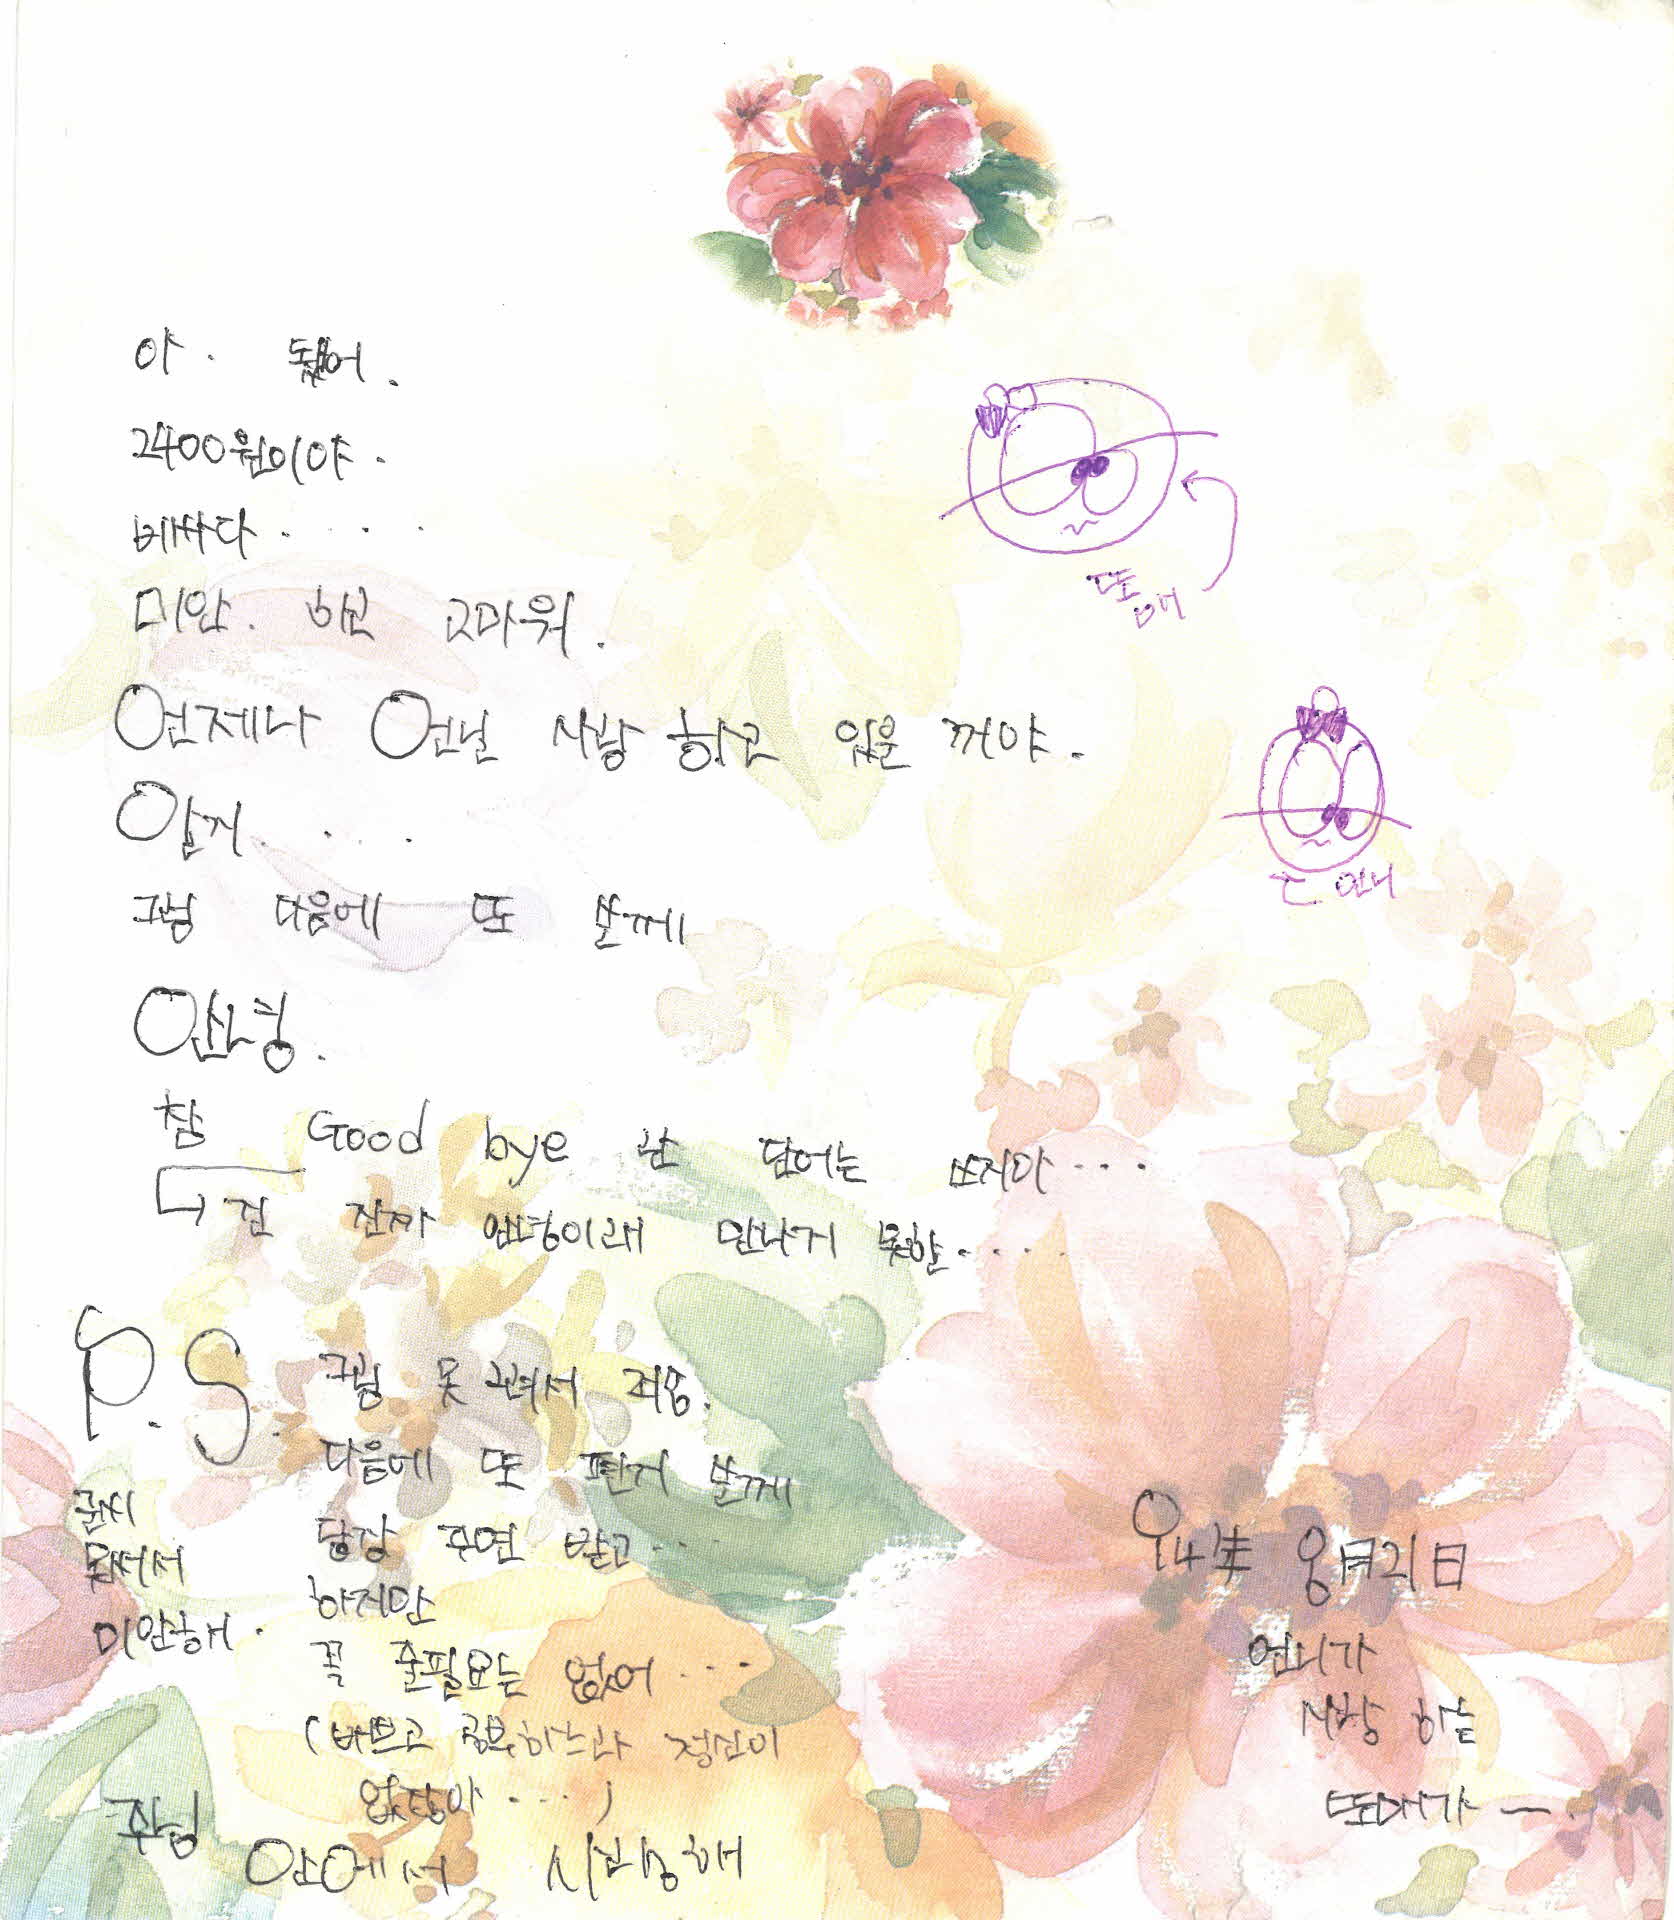 아. 됐어.
2400원이야.
비싸다....
미안. 하고 고마워.
언제나 언닐 사랑 하고 있을 꺼야.
알지...
그럼 다음에 또 쓸께
안녕.
참 Good bye 란 단어는 쓰지마...
건 진짜 안녕이래 만나지 못할....
P.S. 그림 못 그려서 죄송.
다음에 또 편지 쓸께
답장 주면 받고...
하지만
꼭 줄필요는 없어...
(바쁘고 공부하느라 정신이
없잖아...)
글씨
못써서
미안해.
주님 안에서 사랑해
또매
ㄷ 언니
94年 8月21日
언니가
사랑 하는
또매가 ㅡ.